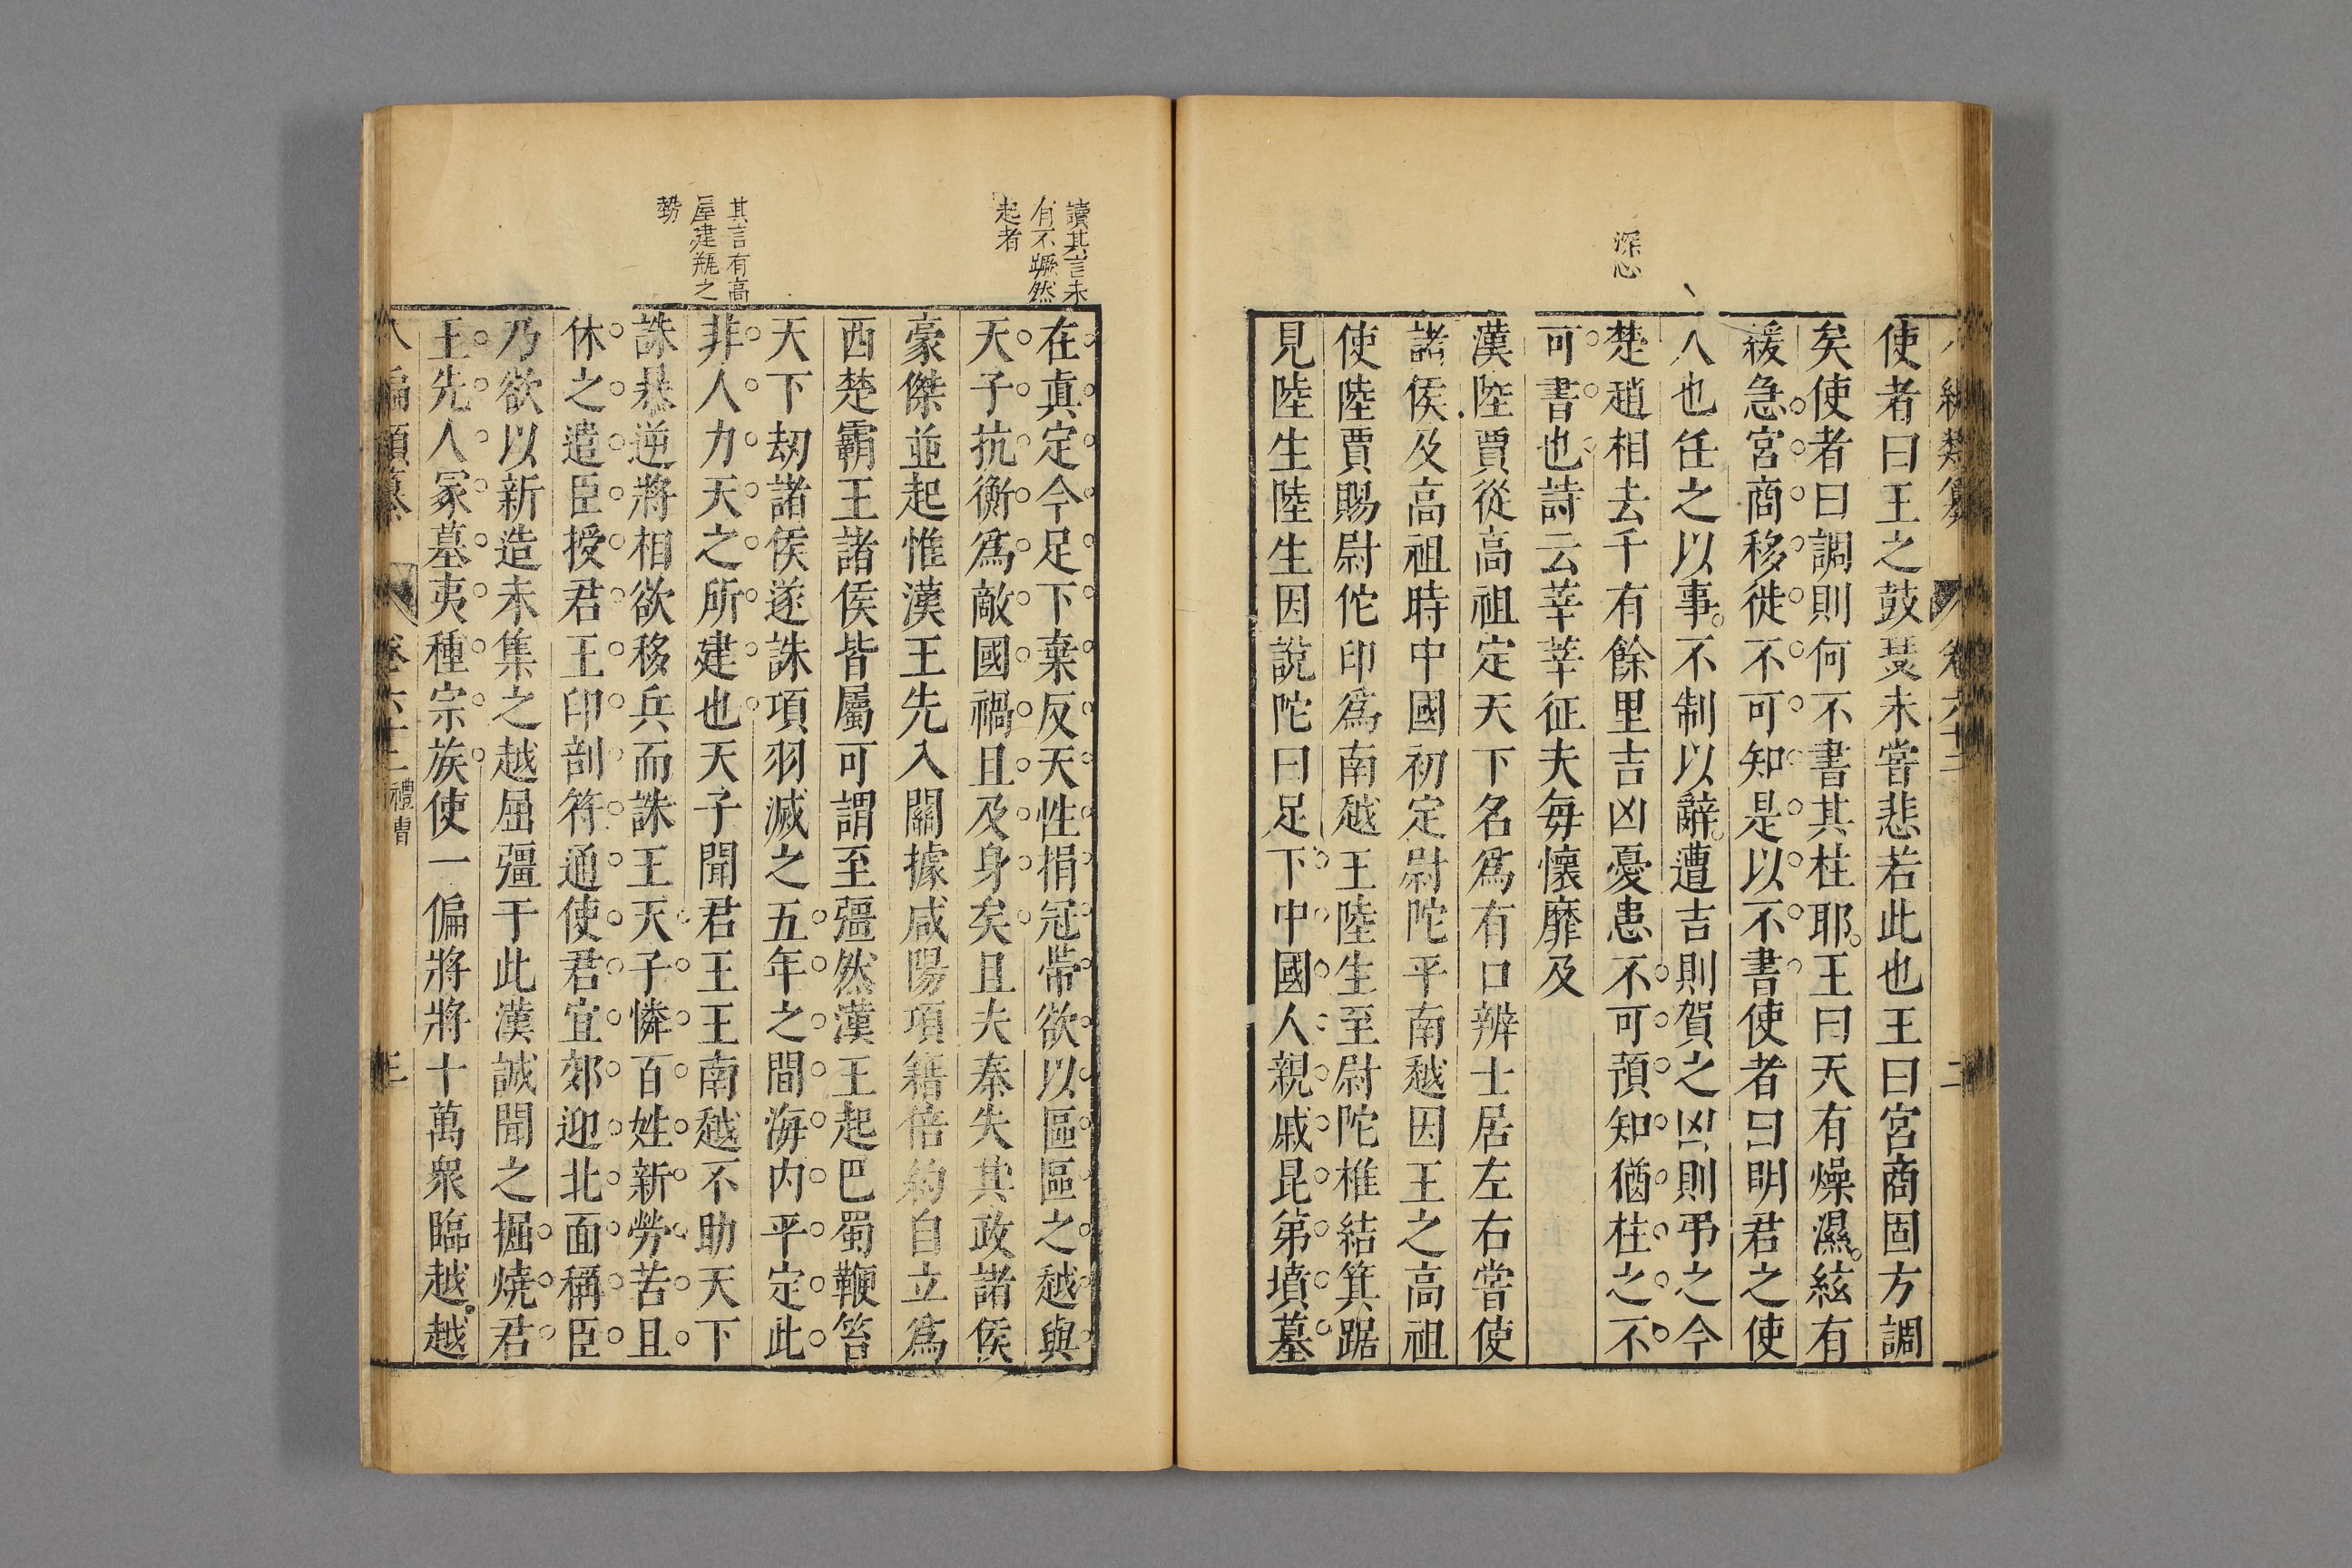 深心
使者曰王之鼓瑟未嘗悲若此也王曰宮商固方調
矣使者曰調則何不書其柱耶王曰天有燥濕絃有
緩急宮商移徙不可知是以不書使者曰明君之使
人也任之以事不制以辭遭吉則賀之凶則弔之今
楚趙相去千有餘里吉凶憂患不可預知猶柱之不
可書也詩云莘莘征夫每懷靡及
漢陸賈從高祖定天下名爲有口辨士居左右嘗使
諸侯及高祖時中國初定尉陀平南越因王之高祖
使陸賈賜尉佗印爲南越王陸生至尉陀椎結箕踞
見陸生陸生因說陀曰足下中國人親戚昆弟墳墓
讀其言未
有不蹶然
起者
其言有高
屋建瓶之
勢
在真定今足下棄反天性捐冠帶欲以區區之越與
天子抗衡爲敵國禍且及身矣且夫秦失其政諸侯
豪傑並起惟漢王先入關據咸陽項籍倍約自立爲
西楚霸王諸侯皆屬可謂至彊然漢王起巴蜀鞭笞
天下劫諸侯遂誅項羽滅之五年之間海內平定此
非人力天之所建也天子聞君王王南越不助天下
誅暴逆將相欲移兵而誅王天子憐百姓新勞苦且
休之遣臣授君王印剖符通使君宜郊迎北面稱臣
乃欲以新造未集之越屈彊于此漢誠聞之掘燒君
王先人冢墓夷種宗族使一偏將將十萬衆臨越越
八編類纂 卷六十二 禮曹 三